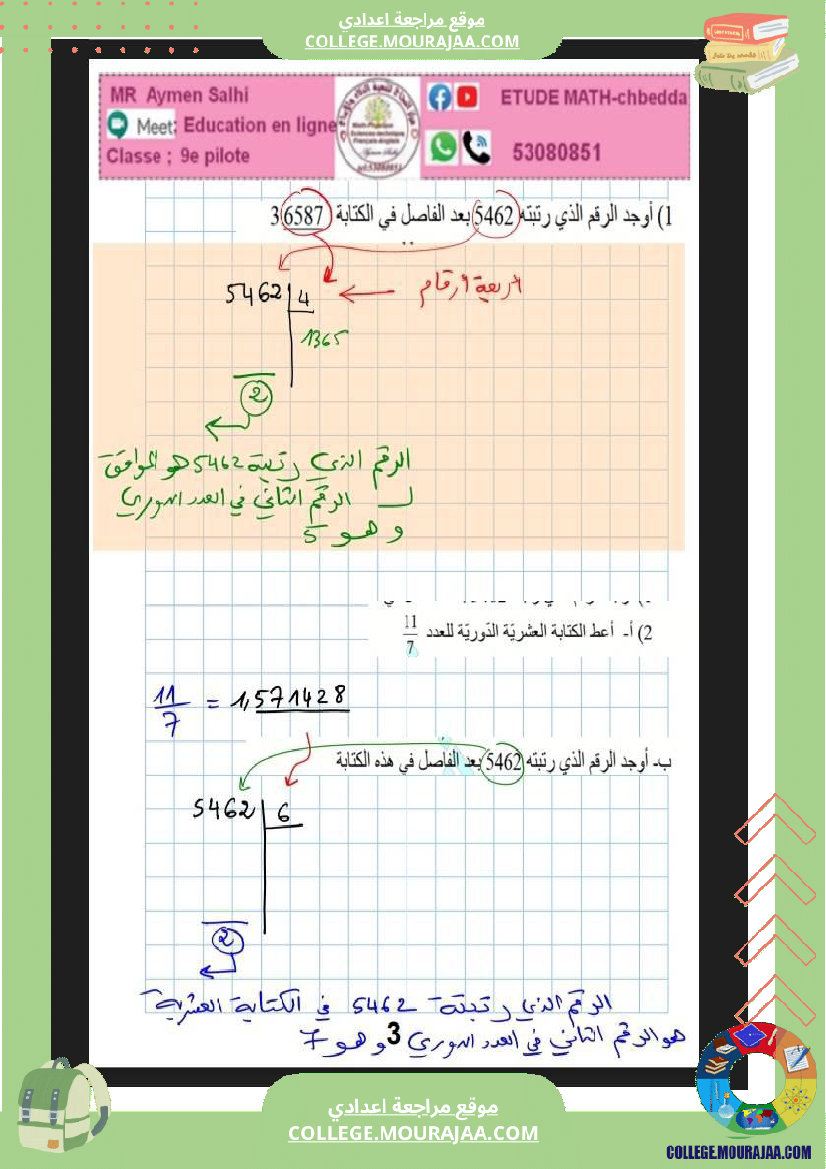 موقع مراجعة اعدادي
COLLEGE.MOURAJAA.COM
MR Aymen Salhi
Meet: Education en ligne
Classe ; 9e pilote
ETUDE MATH-chbedda
53080851
1) أوجد الرقم الذي رتبته 5462 بعد الفاصل في الكتابة 3,6587
5462 | 4
أربعة أرقام
1365
2
الرقم الذي رتبته 5462 هو الموافق
لـ الرقم الثاني في العدد الدوري
و هو 5
2) أ- أعط الكتابة العشريّة الدّوريّة للعدد 11/7
11/7 = 1,571428
ب- أوجد الرقم الذي رتبته 5462 بعد الفاصل في هذه الكتابة
5462 | 6
2
الرقم الذي رتبته 5462 في الكتابة العشرية
هو الرقم الثاني في العدد الدوري و هو 7
3
موقع مراجعة اعدادي
COLLEGE.MOURAJAA.COM
COLLEGE.MOURAJAA.COM